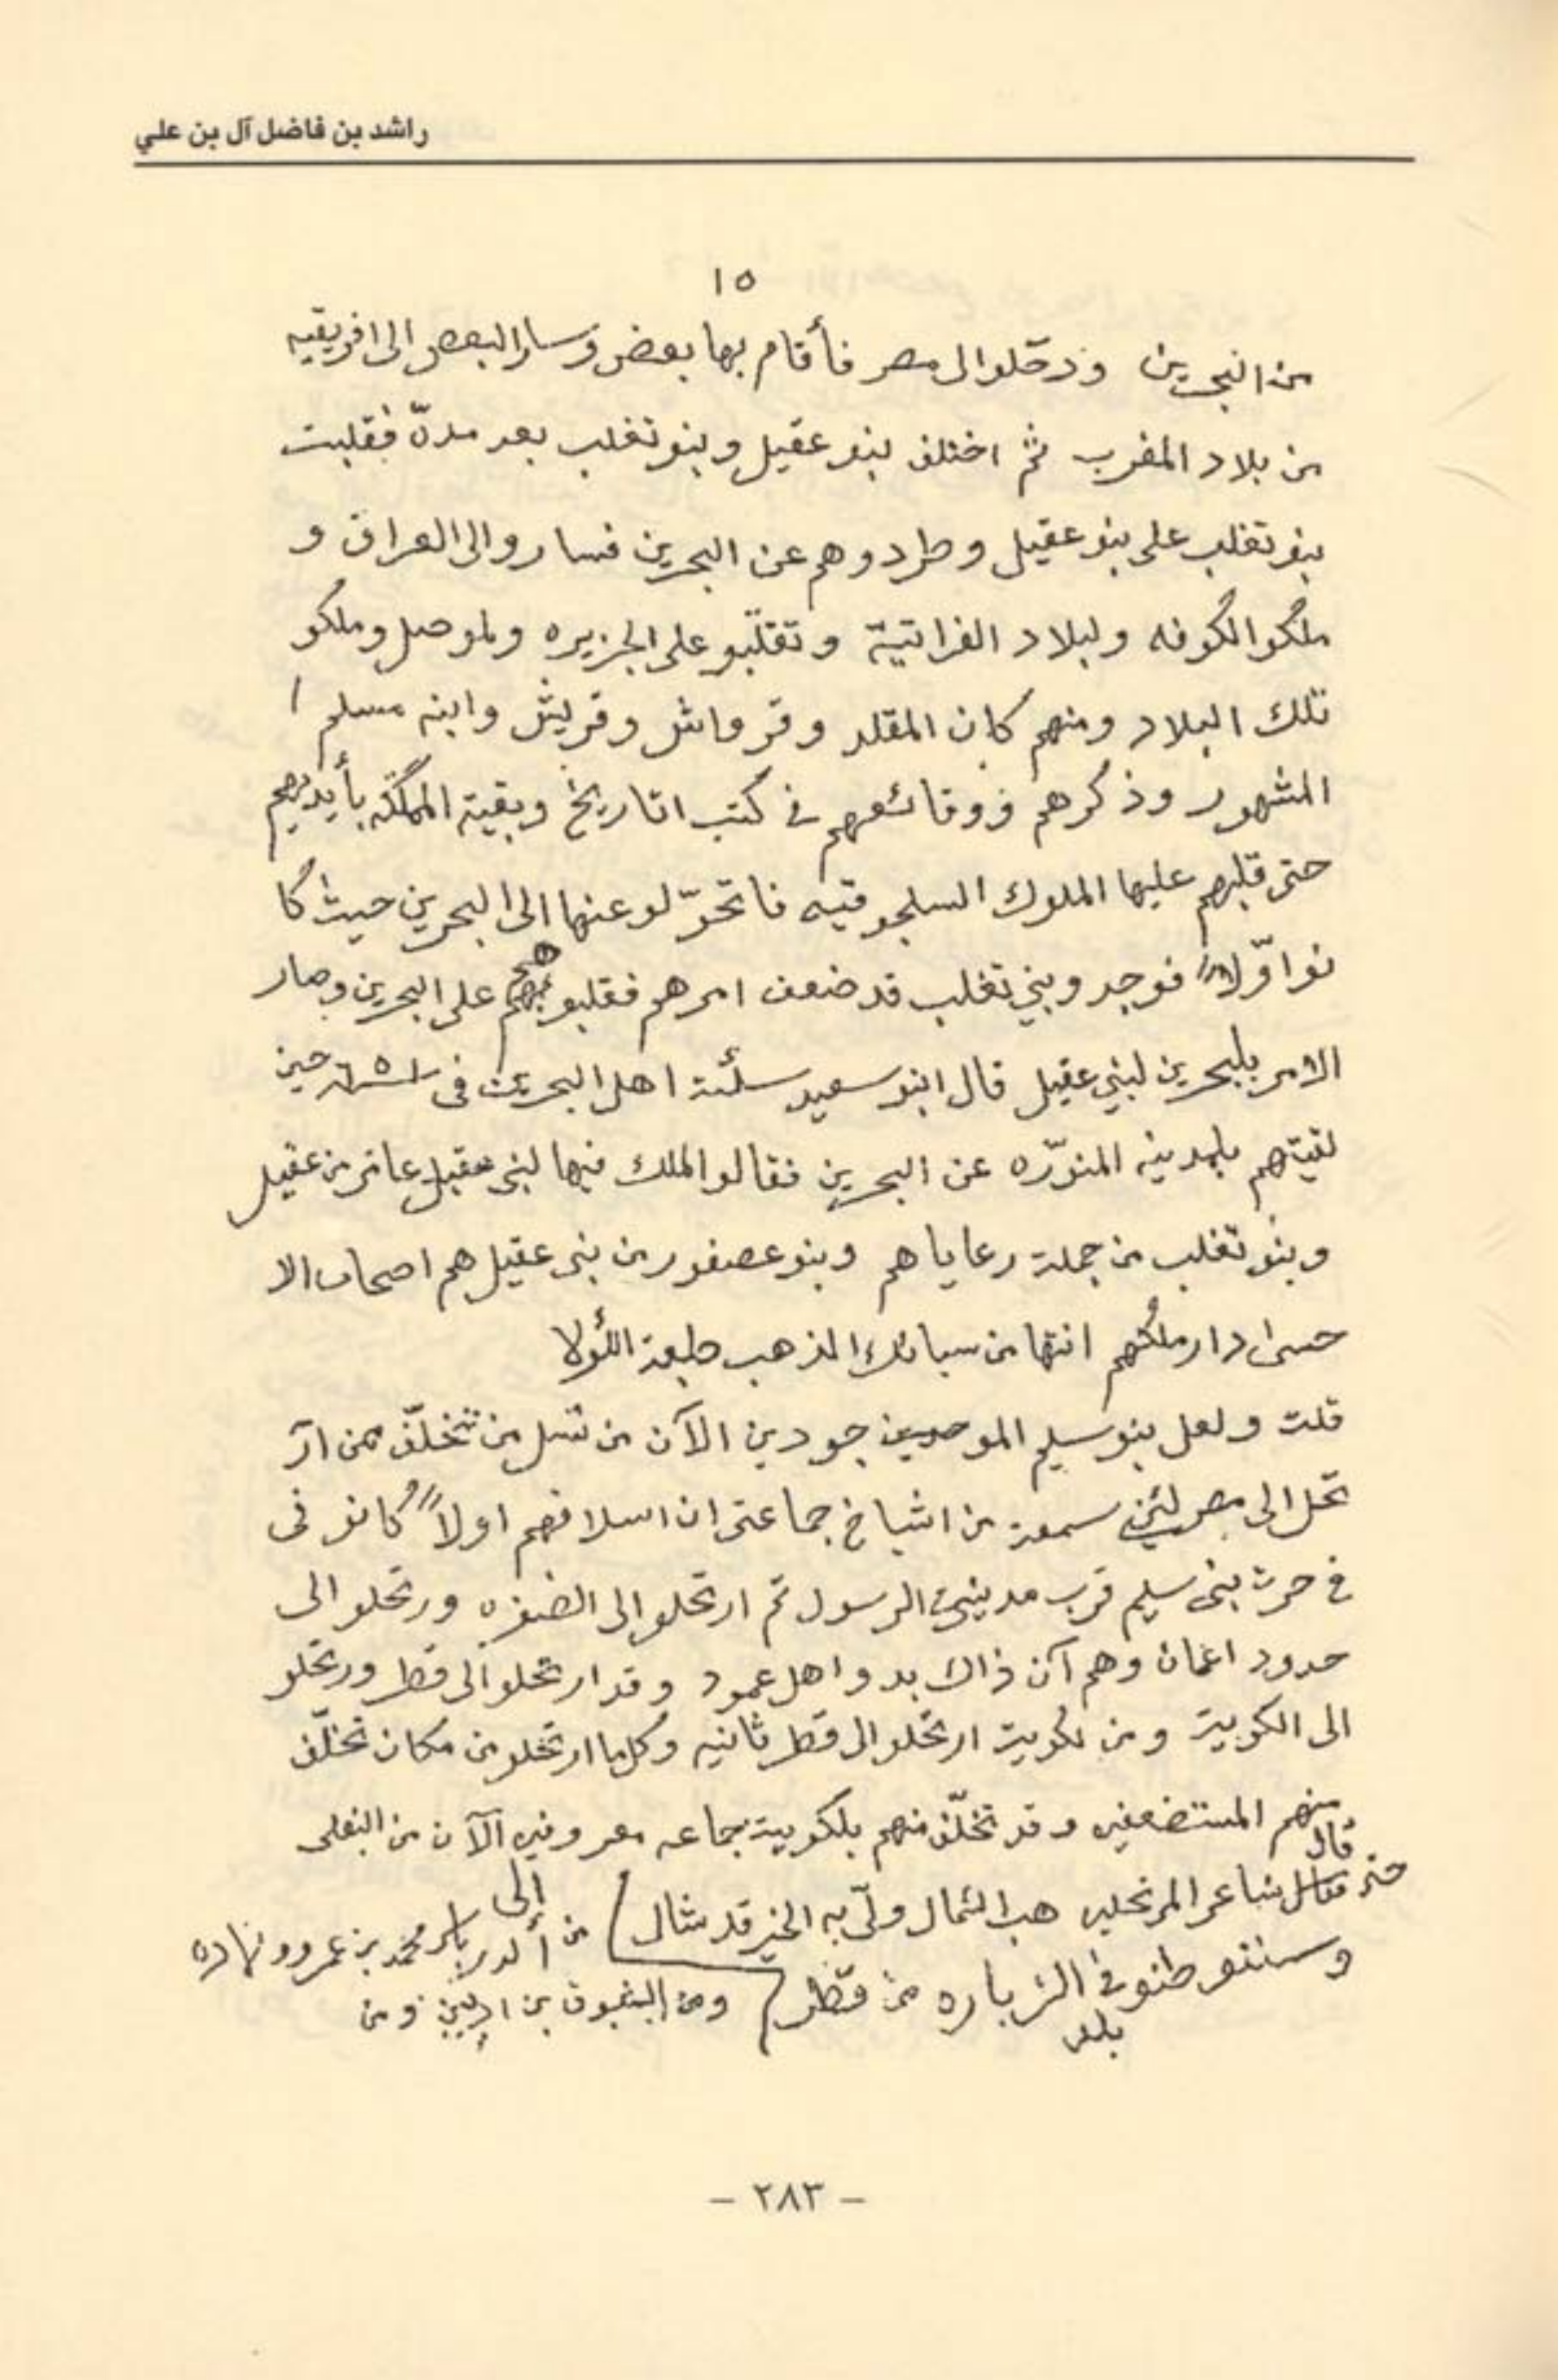 راشد بن فاضل آل بن علي
١٥
من البحرين ودخلوا الى مصر فأقام بها بعض وسار البعض الى افريقيه
من بلاد المغرب ثم اختلف بنو عقيل وبنو تغلب بعد مدّة فقلبت
بنو تغلب على بنو عقيل وطردوهم عن البحرين فساروا الى العراق و
ملكوا الكوفه ولبلاد الفراتية وتقلّبو على الجزيره ولموصل وملكو
تلك البلاد ومنهم كان المقلد وقرواش وقريش وابنه مسلم ا
المشهور وذكرهم ووقائعهم في كتب اتاريخ وبقية المملكة بأيديهم
حتى قلبهم عليها الملوك السلجوقيه فاتحوّلو عنها الى البحرين حيث كا
نوا اوّلاً فوجدو بني تغلب قد ضعف امرهم فقلبو على البحرين وصار
الامر بلبحرين لبني عقيل قال ابنو سعيد سئلة اهل البحرين في حين
لقيتهم بلمدينه المنوّره عن البحرين فقالو الملك فيها لبني عقيل عامر بن عقيل
وبنو تغلب من جملة رعاياهم وبنو عصفور من بني عقيل هم اصحاب الا
حسى دار ملكهم انتها من سبائك الذهب طبعة اللأولا
قلت ولعل بنو سليم الموجودين الآن من نسل من تخلّف ممن ار
تحل الى مصر لئني سمعة من اشياخ جماعتى ان اسلافهم اولاً كانو في
في حرث بني سليم قرب مدينة الرسول ثم ارتحلو الى ورتحلو الى
حدود اعمان وهم آن ذاك بدو اهل عمود وقد ارتحلو الى قطر ورتحلو
الى الكويت ومن لكويت ارتحلو الى قطر ثانيه وكلما ارتحلو من مكان تخلّف
منهم المستضعفين وقد تخلّف منهم بلكويت جماعه معروفين الآن من البنعلى
قال
حتى شاعر المرتحلين هب الشمال ولّى به الخير قد شال من ألدر باسر محمد بن عمرو
إلى
وستوطنو في الزباره من قطر ومن ومن
بلد
- ٢٨٣ -